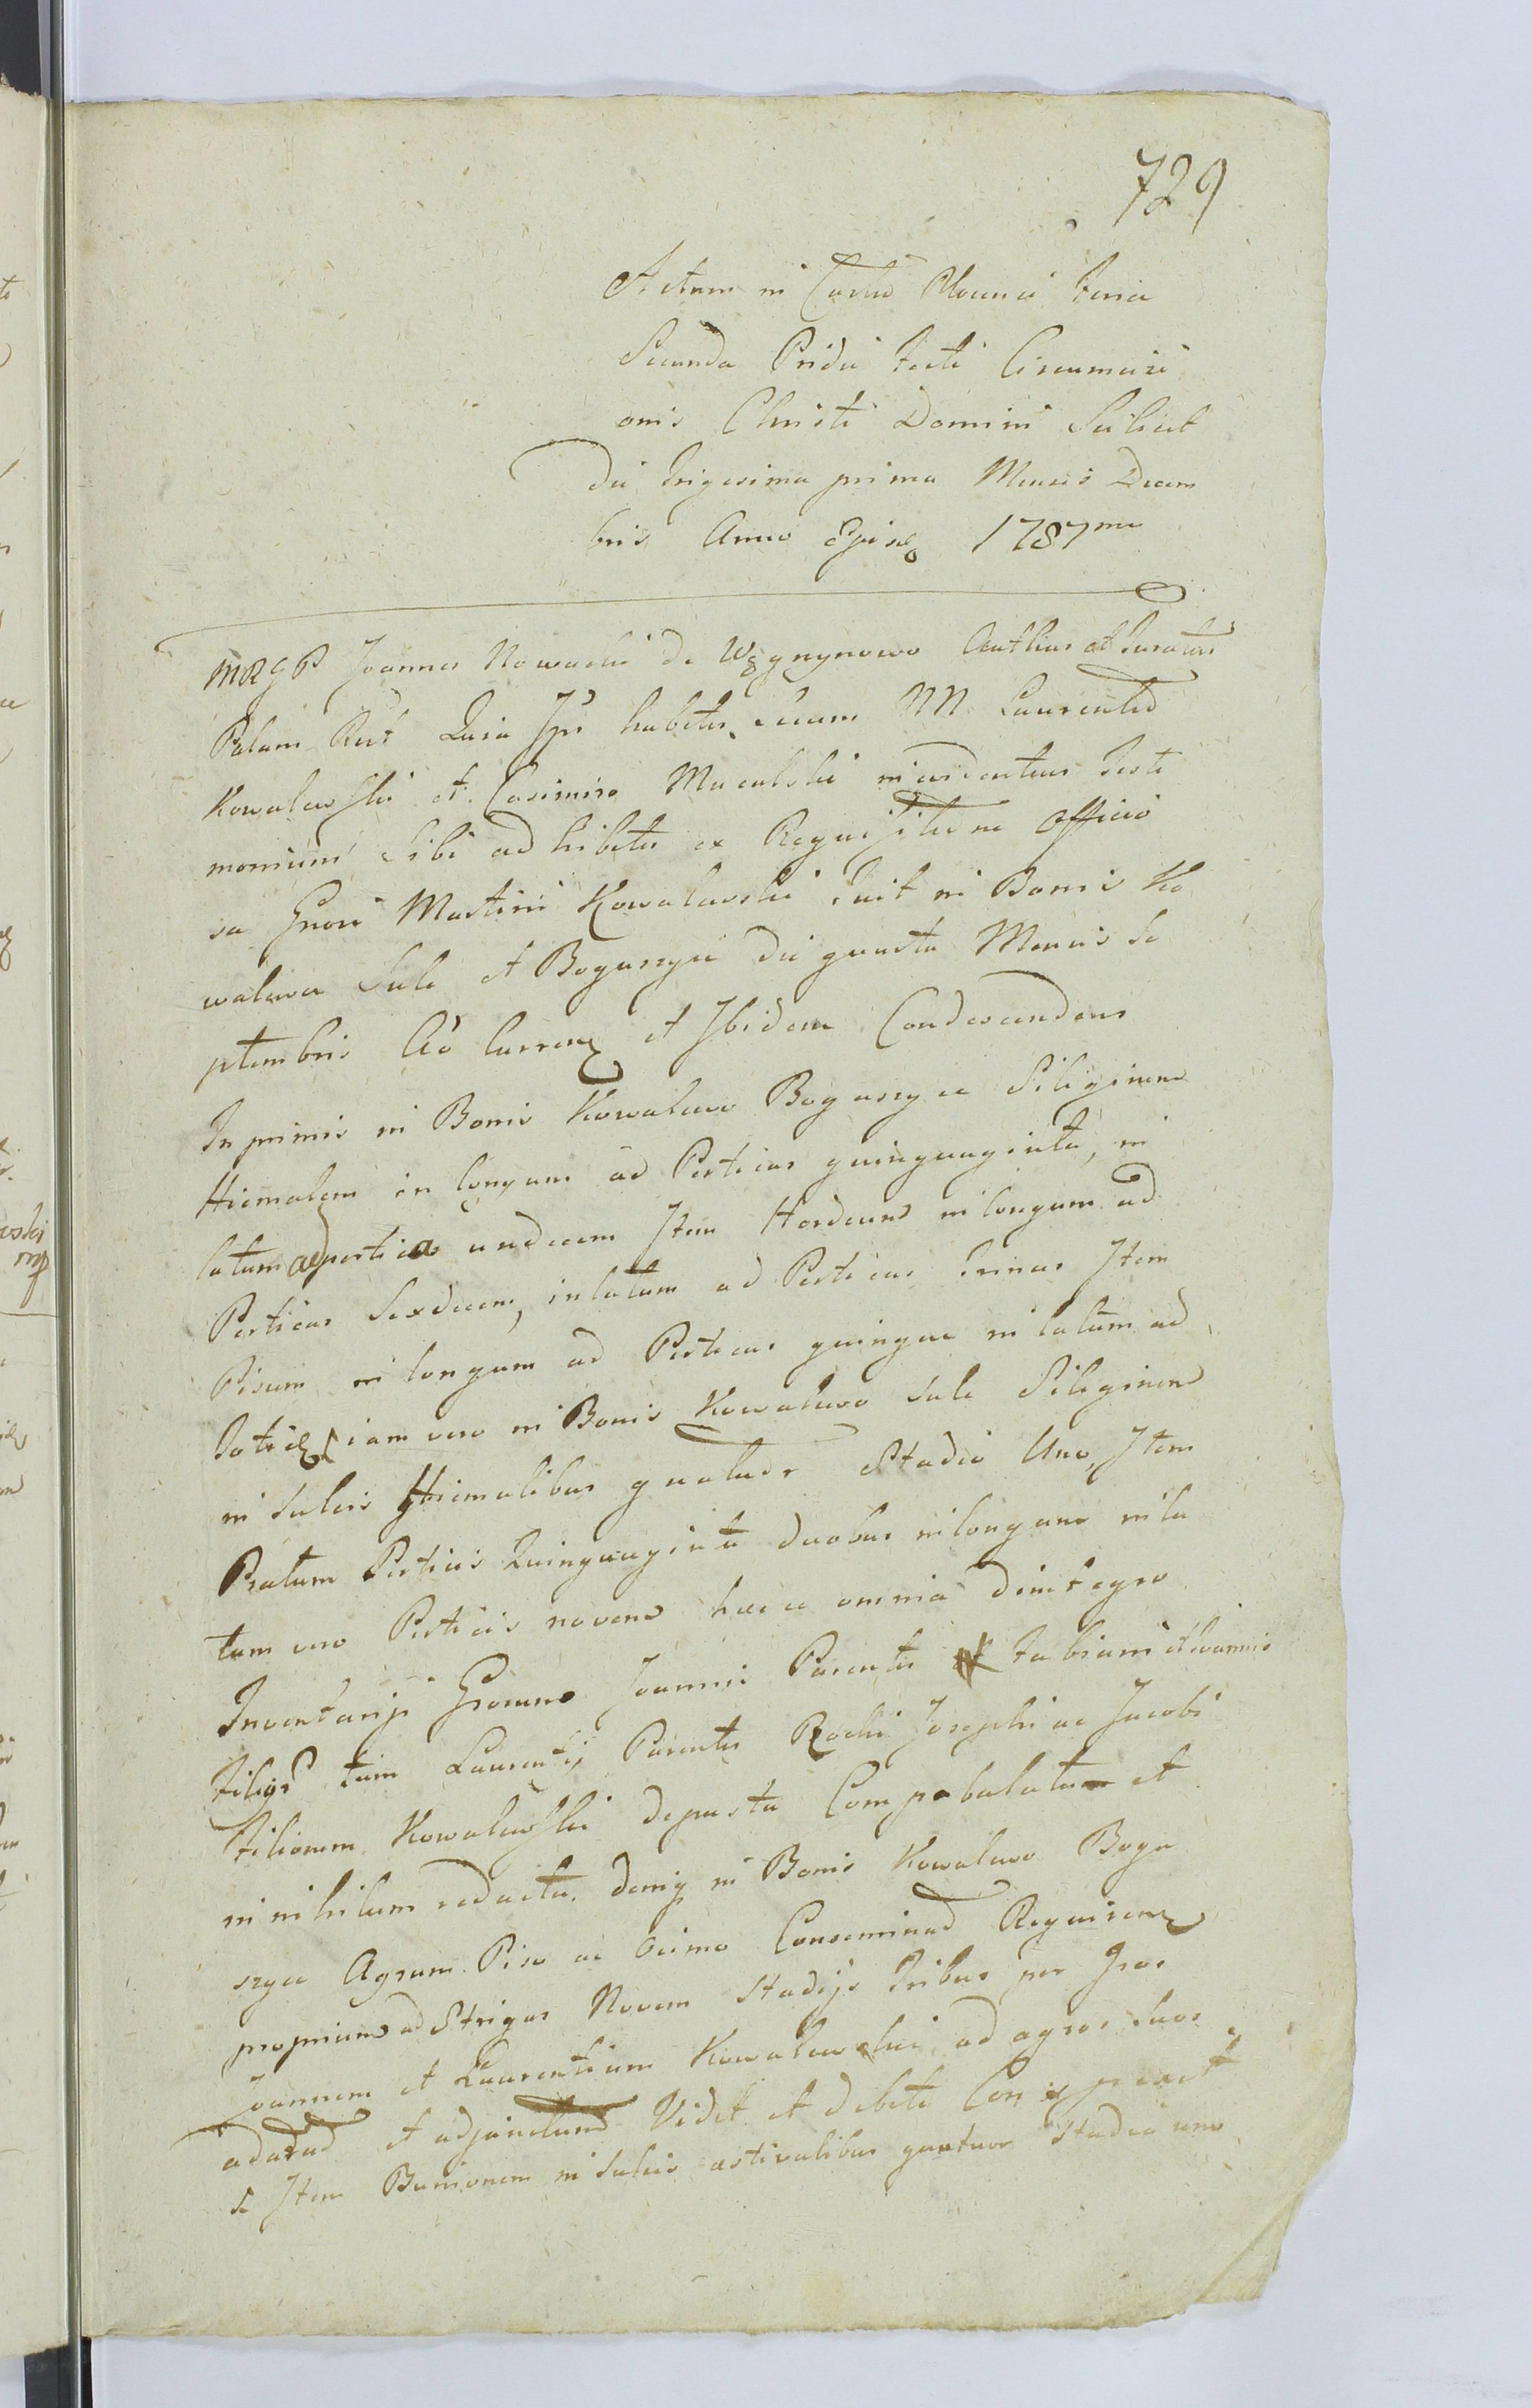 729
Actum in Castro Plocensi Feria
Secunda Pridie Festi Circumcisi
onis Christi Domini Scilicet
Die Trigesima prima Mensis Decem
bris Anno Ejusd 1787mo
MRGP Joannes Nowacki de Węgrzynowo Authus et Juratus
Palam Rct Quia Ips habitis secum NN Laurentio
Kowalewski et Casimiro Macalski incidentium Testi
monium Sibi adhibitis ex Requisitione Officio
sa Gnosi Martini Kowalewski Fuit in Bonis Ko
walewo Sule et Boguszyce Die quarta Mensis Se
ptembris Ao Curren et Ibidem Condescendens
In primis in Bonis Kowalewo Boguszyce Siliginem
Hiemalem in longum ad Perticas quinquaginta, in
latum ad perticas undecem Item Hordeum in longum ad
Perticas Sexdecem, in latum ad Perticas trinas Item
Pisum in longum ad Perticas quinque in latum ad
totid iam vero in Bonis Kowalewo Sule Siliginem
in Sulcis Hiemalibus Stadio Uno, Item
Pratum Perticis Quinquaginta duobus in longum in la
tum vero Perticis novem haec omnia de integro
Inventarijs Gnorum Joannis Parentis Fabiani et Ioannis
Filijs tum Laurentij Parentis Rochi Josephi ac Jacobi
Filiorum Kowalewski depasta Compabulata et
in nihilum redacta. deniq in Bonis Kowalewo Bogu
szyce Agrum Piso ac Conseminad Requiren
proprium ad Strigas Novem Stadijs Tribus per Gnos
Joannem et Laurentium Kowalewskie ad agros suos
adarad et adjunctum Vidit et debite Conspexit
se Item in Sulcis aestivalibus quatuor Stadio uno